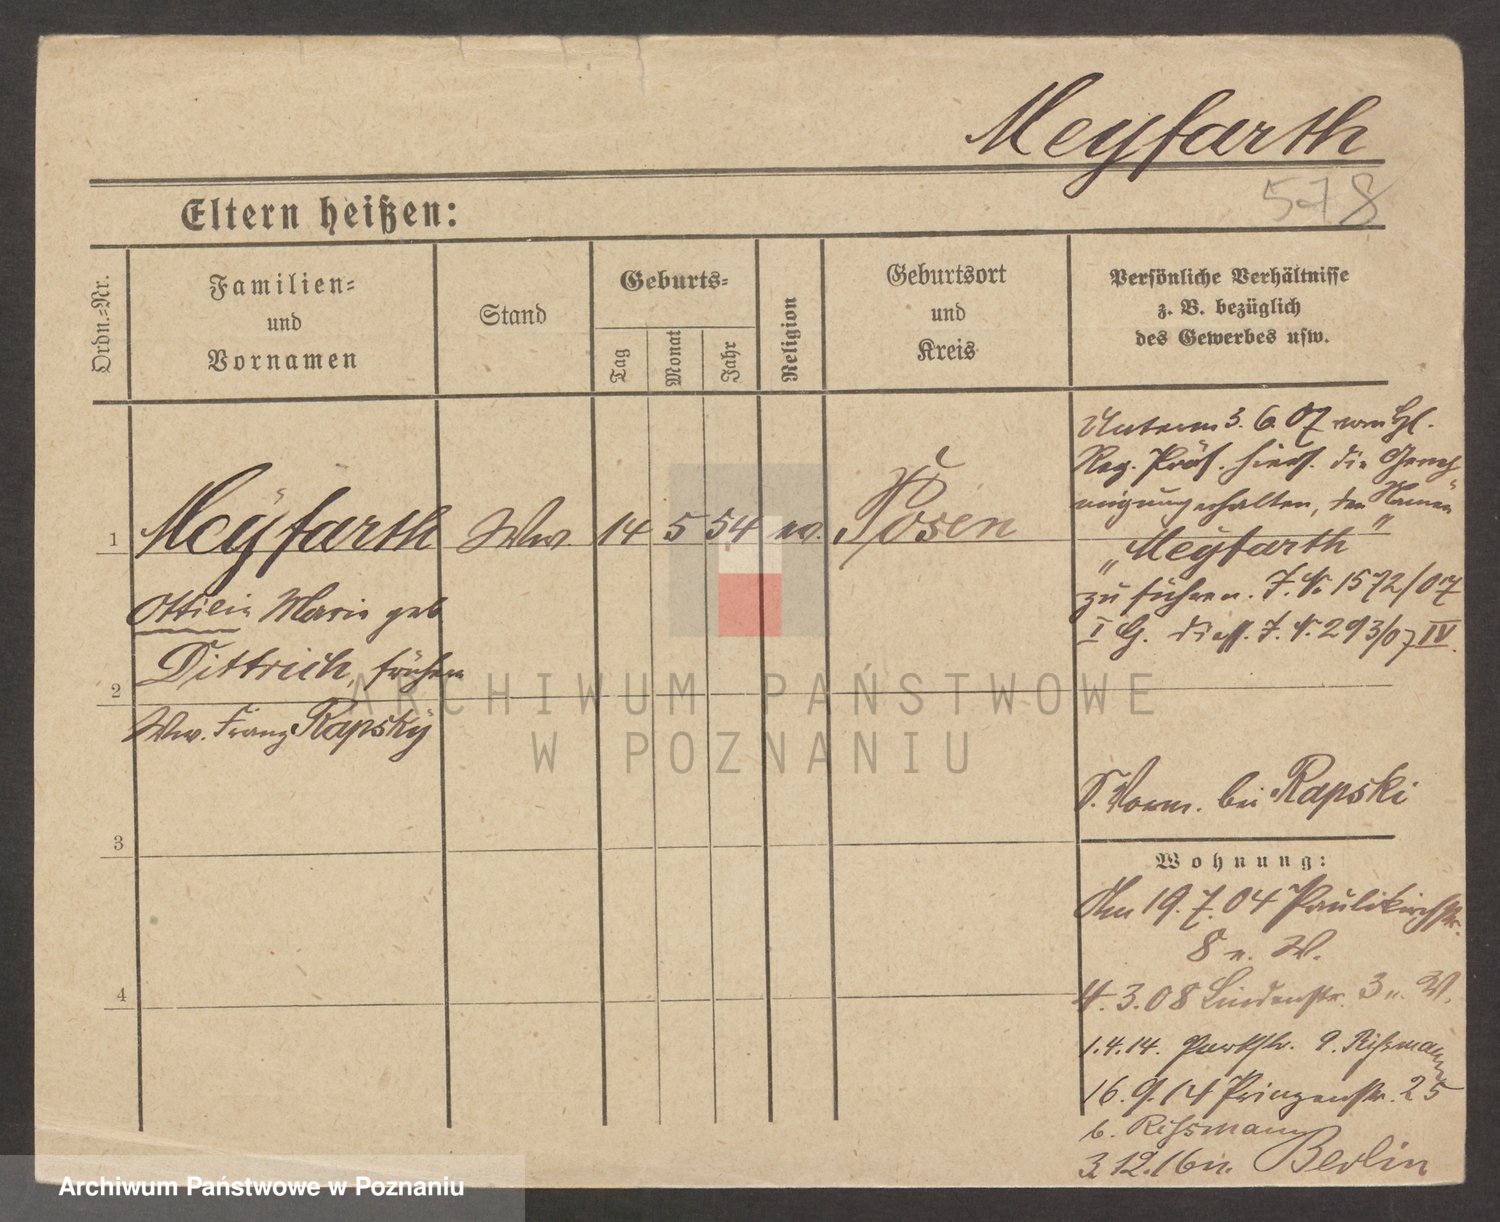 Meyfarth
578
Eltern heißen:
Ordn.=Nr.
Familien=
und
Vornamen
Stand
Geburts=
Tag
Monat
Jahr
Religion
Geburtsort
und
Kreis
Persönliche Verhältnisse
z. B. bezüglich
des Gewerbes usw.
Unterm 3. 6. 07 vom
Reg. Präs. hiers. die Geneh
migung erhalten, den Namen
„Meyfarth"
zu führen. J. No 1572/07
I G. J. N. 293/07 IV.
1 Meyfarth Ww. 14 5 54 ev. Posen
Ottilie Marie geb
Dittrich, früher
2
Ww. Franz Rapsky
S. Vorm. bei Rapski
3
Wohnung:
Am 19. 7. 04 Paulikirchstr.
8 n. W.
4. 3. 08 Lindenstr. 3 n. W.
4
1. 4. 14. Parkstr. 9. Rißmann
16. 9. 14 Prinzenstr. 25
b. Rißmann
3. 12. 16 n. Berlin
ARCHIWUM PAŃSTWOWE
W POZNANIU
Archiwum Państwowe w Poznaniu